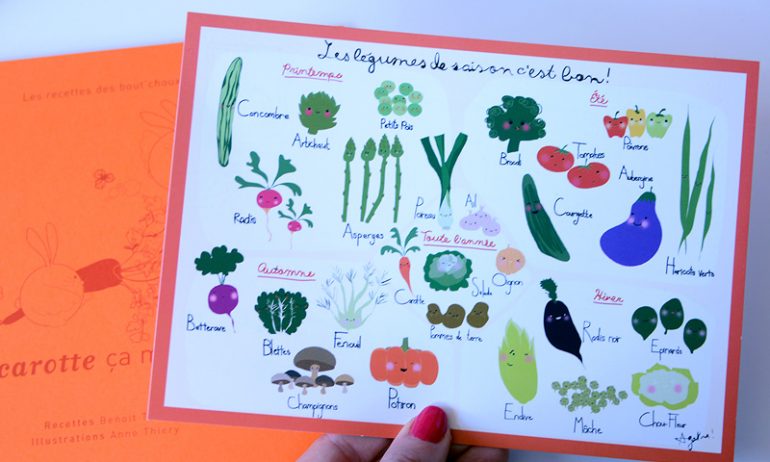 Les légumes de saison c'est bon!
Printemps
Concombre
Artichaut
Petits Pois
Radis
Asperges
Poireau
Ail
Été
Brocoli
Tomates
Poivrons
Courgette
Aubergine
Haricots Verts
Toute l'année
Carotte
Salade
Oignon
Pommes de terre
Automne
Betterave
Blettes
Fenouil
Champignons
Potiron
Hiver
Endive
Radis noir
Epinards
Mâche
Chou-Fleur
Les recettes des bout'chou
carotte ça m
Recettes Benoit
Illustrations Anne Thiery